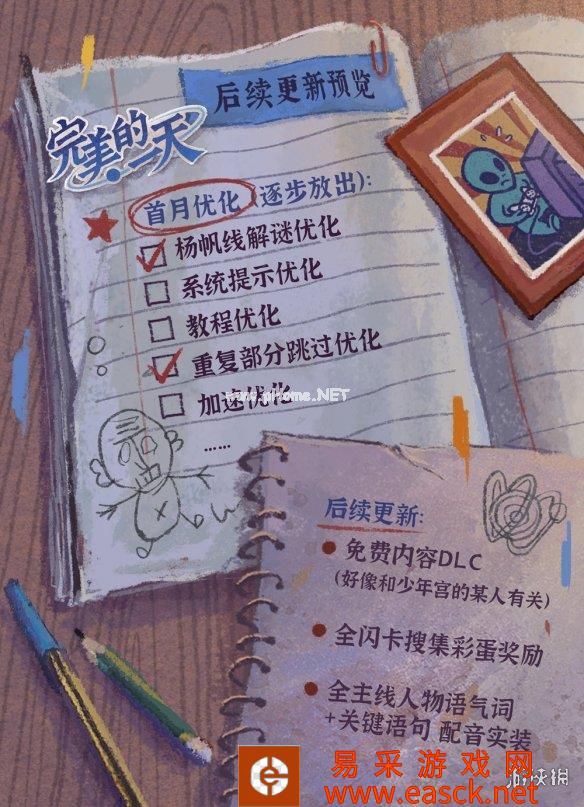 后续更新预览
完美的一天
首月优化(逐步放出):
杨帆线解谜优化
系统提示优化
教程优化
重复部分跳过优化
www.pHome.NET
加速优化
……
后续更新:
免费内容DLC
(好像和少年宫的某人有关)
全闪卡搜集彩蛋奖励
全主线人物语气词
+关键语句 配音实装
易采游戏网
www.easck.net
游侠网